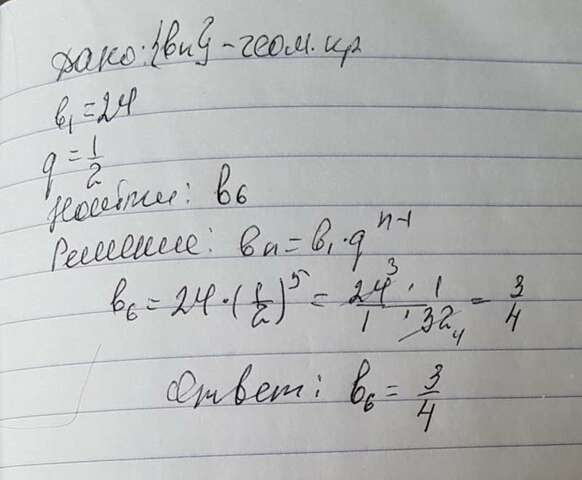 Дано: {bn} - геом. пр
b₁ = 24
q = 1/2
Найти: b₆
Решение: bn = b₁ · q^(n-1)
b₆ = 24 · (1/2)^5 = (24³ · 1)/(1 · 32₄) = 3/4
Ответ: b₆ = 3/4